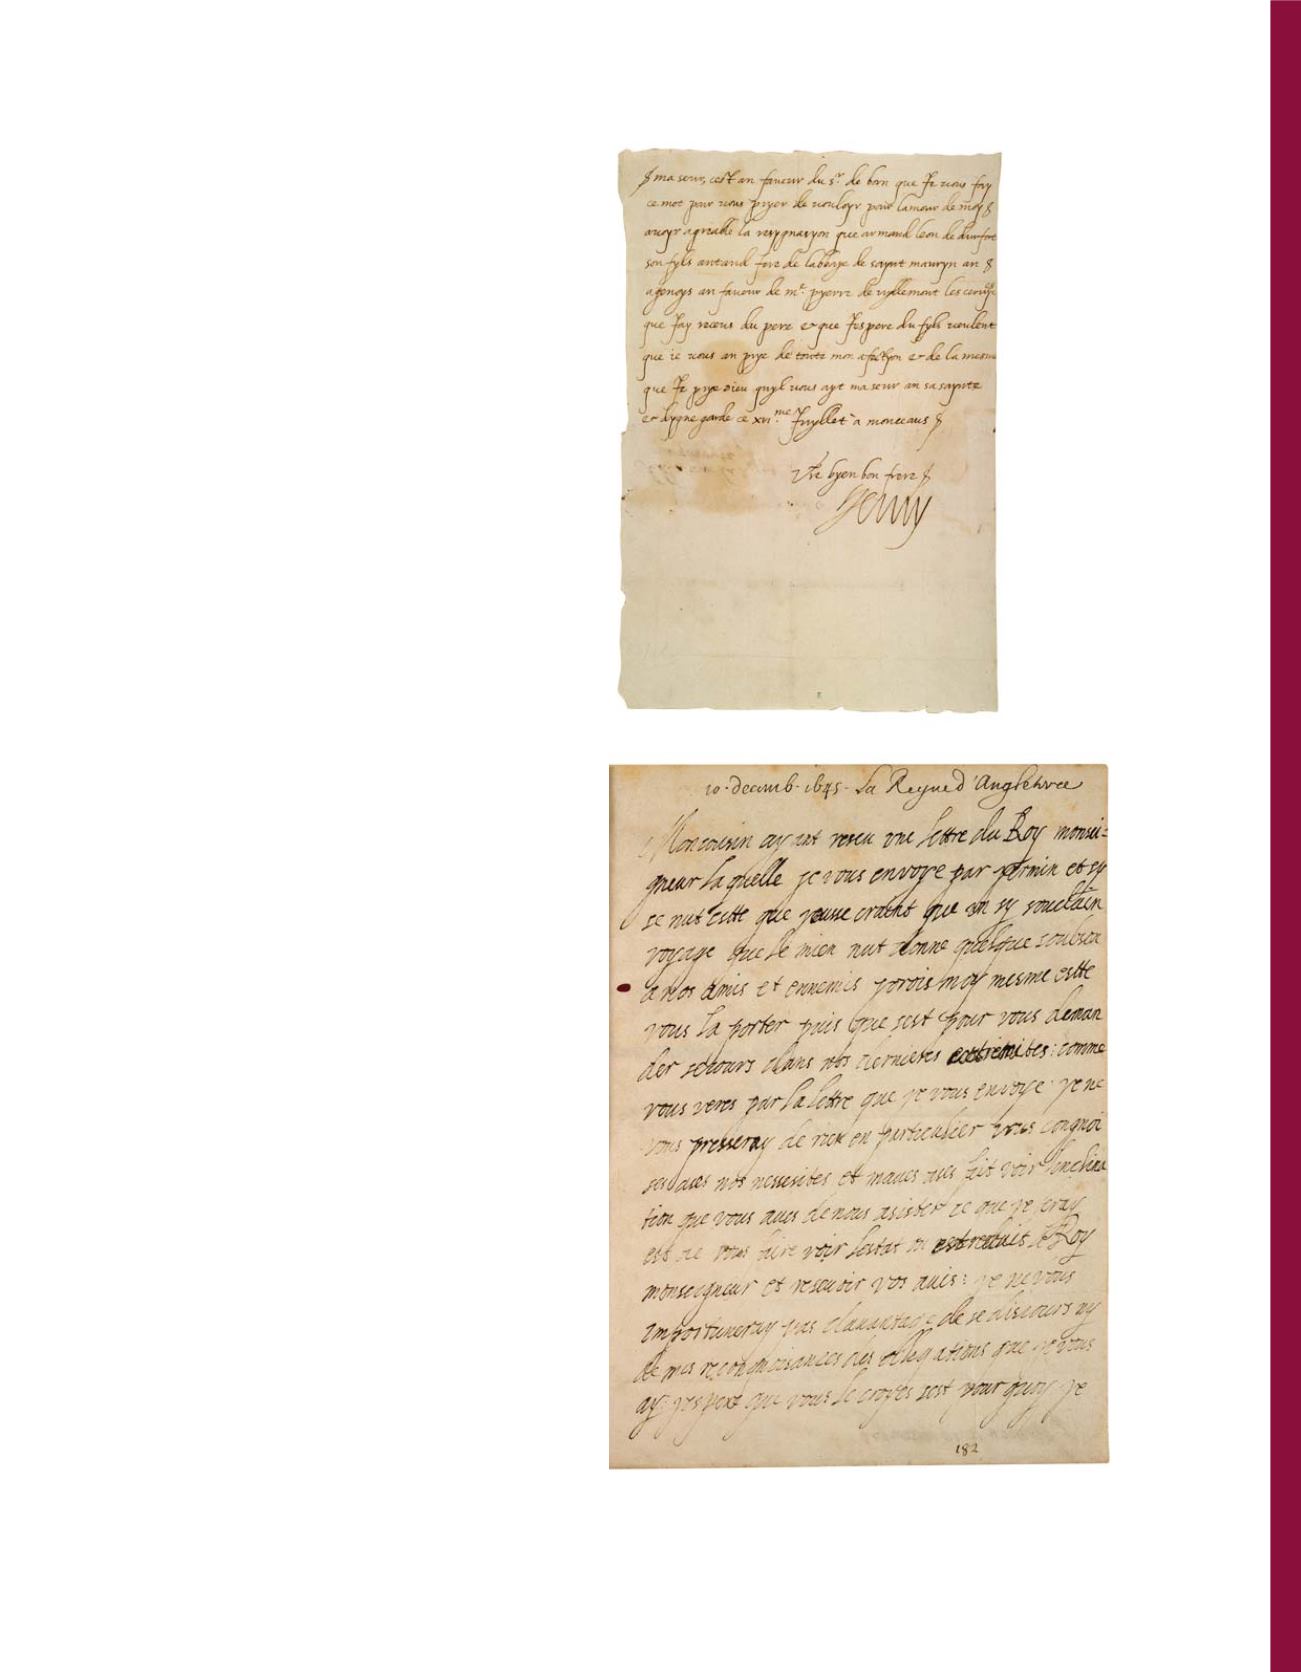 ma seur, cest an faveur du sr. de born que Je vous fay
ce mot pour vous pryer de vouloyr pour lamour de moy
avoyr agreable la resygnasyon que armand leon de durfort
son fyls antand fere de labbaye de saynt mauryn an
agenoys an faveur de mr. pyerre de vyllemont les servyse
que Jay receus du pere & que Jespere du fyls veulent
que ie vous an prye de toute mon afectyon & de la mesme
que Je prye dieu quyl vous ayt ma seur an sa saynte
& dygne garde ce xvi.me Juyllet a monceaus
Vre byen bon frere
Henry
10. decemb. 1645. La Reyne d'Angleterre
Mon cousin ayant reseu une lettre du Roy monsei=
gneur laquelle je vous envoye par et sy
se nut este que jeusse craint que un sy soudain
voyage que le mien nut donne quelque soubson
a nos amis et ennemis jorois moy mesme estte
vous la porter puis que sest pour vous deman
der secours dans nos dernieres extremites: comme
vous veres par la lettre que je vous envoye je ne
vous presseray de rien en particulier vous congnoi
ses ases nos nessesites et maves ases fait voir lenclina
tion que vous aves de nous asister ce que je feray
est de vous faire voir lestat ou est reduis le Roy
monseigneur et resevoir vos avis: je ne vous
importuneray pas davantage de se discours ny
de mes recongnoisances des obligations que je vous
ay: jespere que vous le croyes sest pour quoy je
182